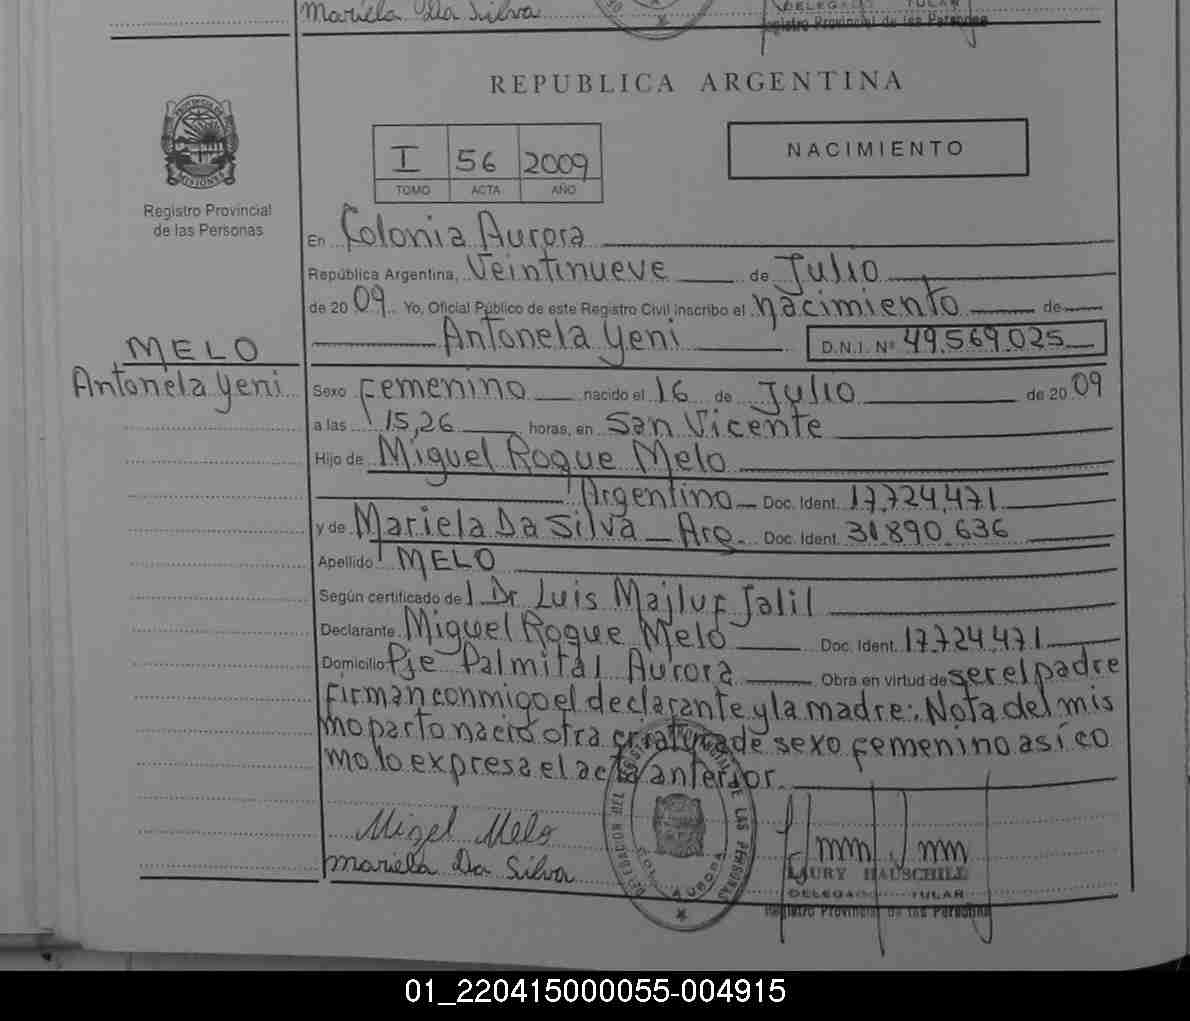 Mariela Da Silva
DELEGADO TULAR
Registro Provincial de las Personas
REPUBLICA ARGENTINA
PROVINCIA DE MISIONES
Registro Provincial
de las Personas
I 56 2009
TOMO ACTA AÑO
NACIMIENTO
En Colonia Aurora
República Argentina, Veintinueve de Julio
de 2009. Yo, Oficial Público de este Registro Civil inscribo el nacimiento de
Antonela Yeni D.N.I. Nº 49.569.025
MELO
Antonela Yeni
Sexo Femenino nacido el 16 de Julio de 2009
a las 15,26 horas, en San Vicente
Hijo de Miguel Roque Melo
Argentino Doc. Ident. 17.724.471
y de Mariela Da Silva Arg. Doc. Ident. 31.890.636
Apellido MELO
Según certificado del Dr Luis Majluf Jalil
Declarante Miguel Roque Melo Doc. Ident. 17.724.471
Domicilio Pje Palmital Aurora Obra en virtud de ser el padre
firman conmigo el declarante y la madre:. Nota del mis
mo parto nació otra criatura de sexo femenino así co
mo lo expresa el acta anterior.
Migel Melo
Mariela Da Silva
DELEGACION DEL REGISTRO PROVINCIAL DE LAS PERSONAS
COL. AURORA
LAURY HAUSCHILD
DELEGADO TULAR
Registro Provincial de las Personas
01_220415000055-004915